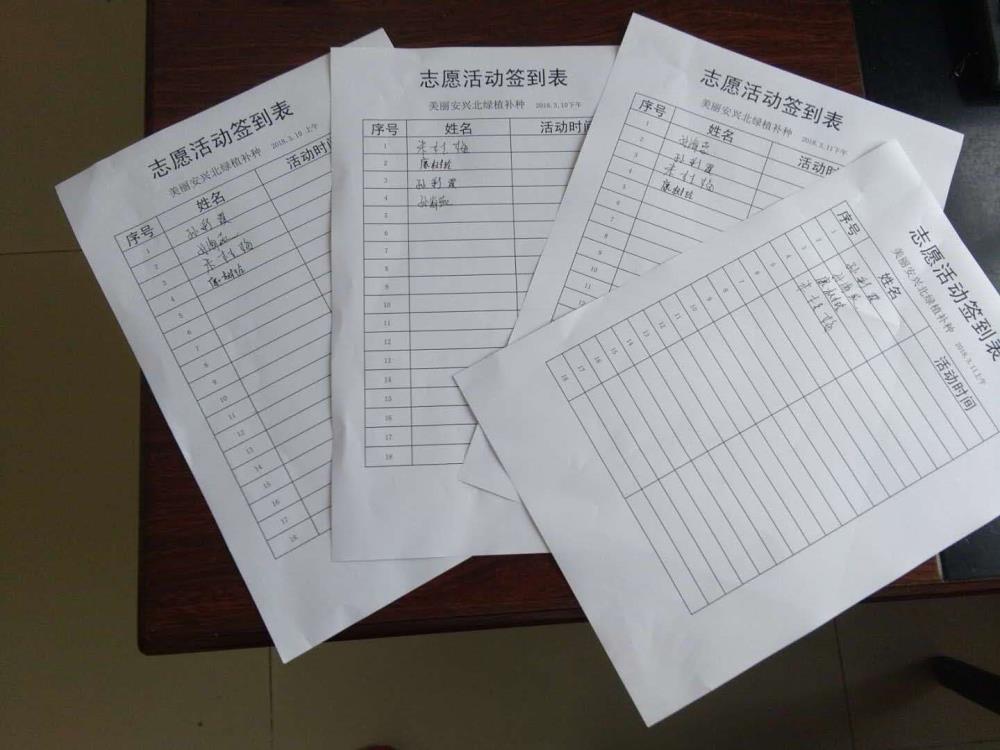 志愿活动签到表
美丽安兴北绿植补种 2018.3.10 上午
序号 姓名 活动时间
1 孙彩霞
2
3 朱桂梅
4 康树珍
5
6
7
8
9
10
11
12
13
14
15
16
17
18
志愿活动签到表
美丽安兴北绿植补种 2018.3.10下午
序号 姓名 活动时间
1 朱桂梅
2 康树珍
3 孙彩霞
4
5
6
7
8
9
10
11
12
13
14
15
16
17
18
志愿活动签到表
美丽安兴北绿植补种 2018.3.11下午
序号 姓名 活动时
1
2 孙彩霞
3 朱桂梅
4 康树珍
5
6
7
8
9
10
11
12
志愿活动签到表
美丽安兴北绿植补种 2018.3.11上午
序号 姓名 活动时间
1 孙彩霞
2
3 康树珍
4 朱桂梅
5
6
7
8
9
10
11
12
13
14
15
16
17
18